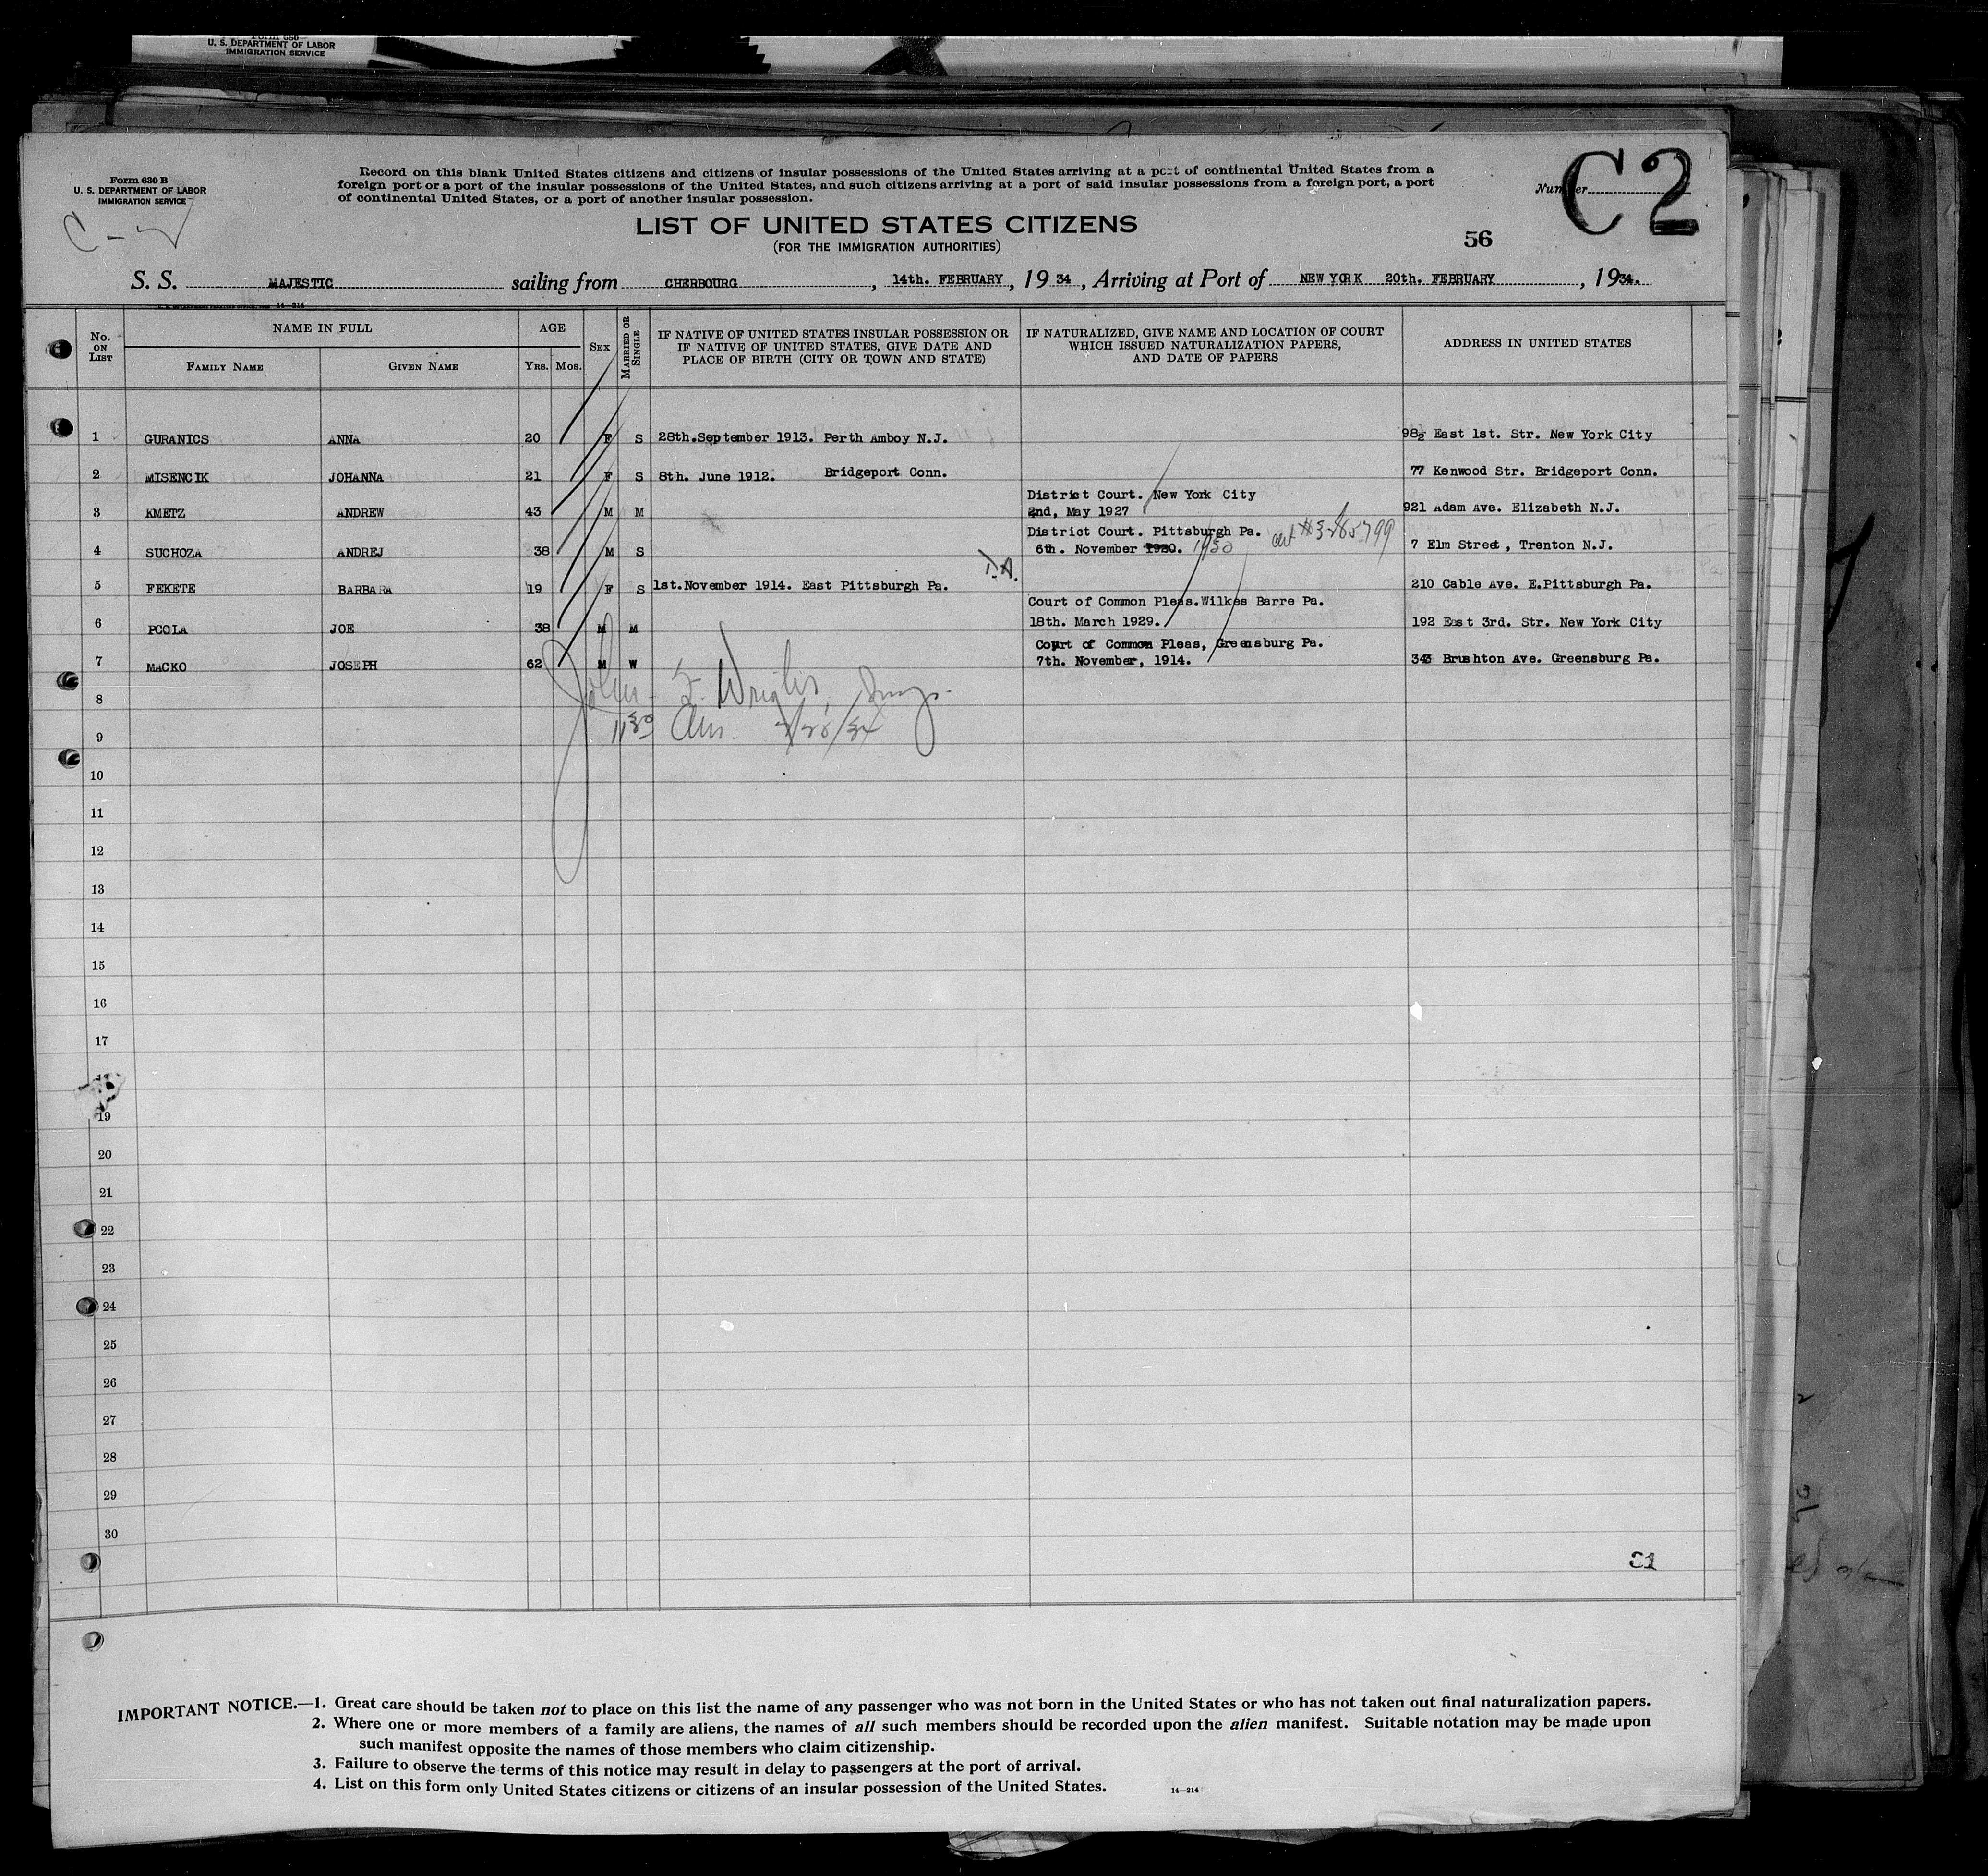 Form 680
U. S. DEPARTMENT OF LABOR
IMMIGRATION SERVICE
Form 630 B
U. S. DEPARTMENT OF LABOR
IMMIGRATION SERVICE
Record on this blank United States citizens and citizens of insular possessions of the United States arriving at a port of continental United States from a
foreign port or a port of the insular possessions of the United States, and such citizens arriving at a port of said insular possessions from a foreign port, a port
of continental United States, or a port of another insular possession.
Number
C2
LIST OF UNITED STATES CITIZENS
(FOR THE IMMIGRATION AUTHORITIES)
56
S. S. MAJESTIC sailing from CHERBOURG, 14th. FEBRUARY, 1934, Arriving at Port of NEW YORK 20th. FEBRUARY, 1934.
14—214
No. ON LIST
NAME IN FULL
FAMILY NAME
GIVEN NAME
AGE
YRS. MOS.
SEX
MARRIED OR SINGLE
IF NATIVE OF UNITED STATES INSULAR POSSESSION OR
IF NATIVE OF UNITED STATES, GIVE DATE AND
PLACE OF BIRTH (CITY OR TOWN AND STATE)
IF NATURALIZED, GIVE NAME AND LOCATION OF COURT
WHICH ISSUED NATURALIZATION PAPERS,
AND DATE OF PAPERS
ADDRESS IN UNITED STATES
1 GURANICS ANNA 20 F S 28th.September 1913. Perth Amboy N.J. East 1st. Str. New York City
2 MISENCIK JOHANNA 21 F S 8th. June 1912. Bridgeport Conn. 77 Kenwood Str. Bridgeport Conn.
District Court. New York City
3 KMETZ ANDREW 43 M M 2nd, May 1927 921 Adam Ave. Elizabeth N.J.
District Court. Pittsburgh Pa.
4 SUCHOZA ANDREJ 38 M S 6th. November 1920. 1930 7 Elm Street, Trenton N.J.
5 FEKETE BARBARA 19 F S 1st.November 1914. East Pittsburgh Pa. 210 Cable Ave. E.Pittsburgh Pa.
Court of Common Pleas.Wilkes Barre Pa.
6 PCOLA JOE 38 M M 18th. March 1929. 192 East 3rd. Str. New York City
Court of Common Pleas, Greensburg Pa.
7 MACKO JOSEPH 62 M W 7th. November, 1914. 343 Brushton Ave. Greensburg Pa.
8
9
10
11
12
13
14
15
16
17
19
20
21
22
23
24
25
26
27
28
29
30
IMPORTANT NOTICE.—1. Great care should be taken not to place on this list the name of any passenger who was not born in the United States or who has not taken out final naturalization papers.
2. Where one or more members of a family are aliens, the names of all such members should be recorded upon the alien manifest. Suitable notation may be made upon
such manifest opposite the names of those members who claim citizenship.
3. Failure to observe the terms of this notice may result in delay to passengers at the port of arrival.
4. List on this form only United States citizens or citizens of an insular possession of the United States.
14—214